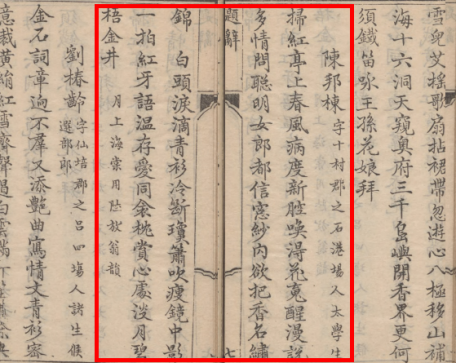 雪兒艾搖歌扇拈裙帶忽遊心八極移山補
海十六洞天窺奧府三千島嶼開香界更何
須鐵笛吹王孫花娘拜
陳邦棟 字十村郡之石港場人太學生
掃紅亭上春風病度新腔喚得花魂醒漫說
多情閒聰明女郎都信窓紗內欲把香名繡
題辭 七
錦 白頭淚滴青衫冷斷瓊簫吹瘦鏡中影
一拍紅牙語溫存愛同衾枕賞心處淡月碧
梧金井 月上海棠用陸放翁韻
劉椿齡 字仙培郡之呂四場人諸生候選部郎
金石詞章迥不羣又添艷曲寫情文青衫
意裁黃絹紅雪聲遏白雲